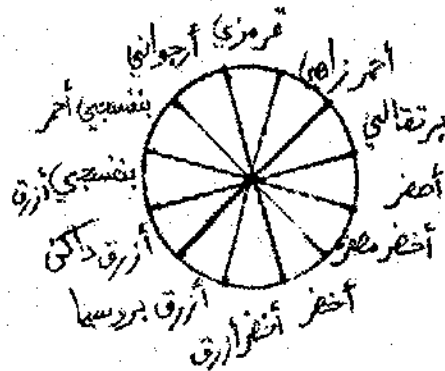 قرمزي
أحمر زاهي
برتقالي
أصفر
أخضر مصفر
أخضر
أخضر أزرق
أزرق بروسيا
أزرق داكن
بنفسجي أزرق
بنفسجي أحمر
أرجواني